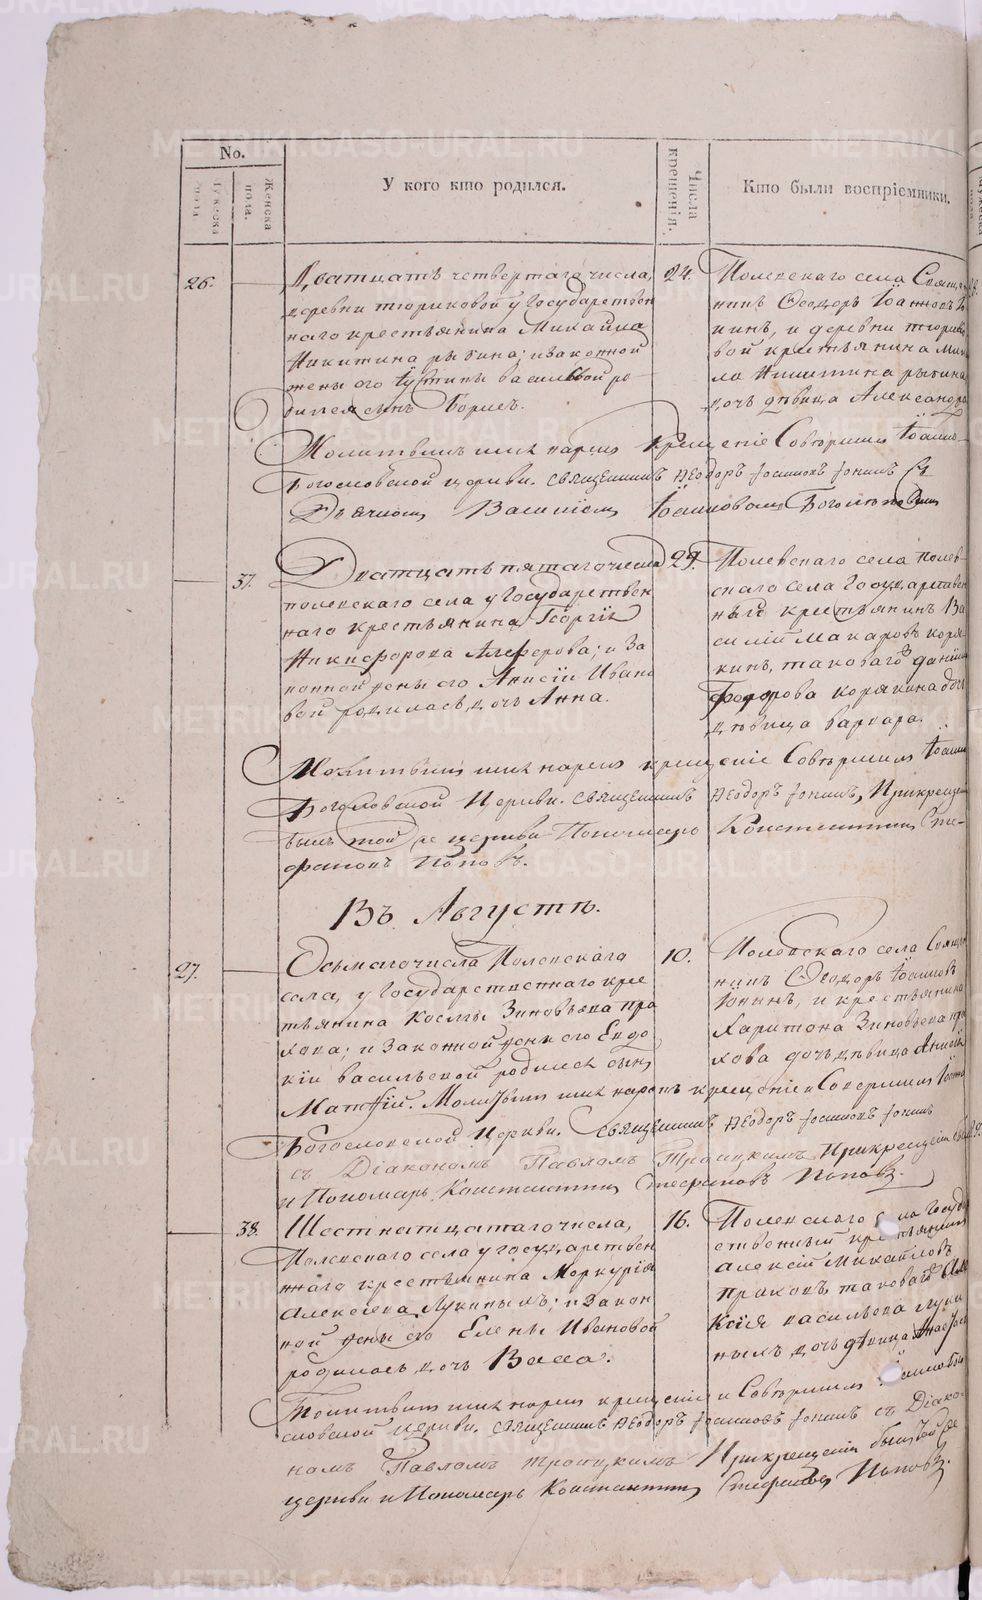 No.
Мужеска пола
Женска пола.
У кого кто родился.
Числа крещенія.
Кто были воспріемники.
26.
Дватцать четвертаго числа,
деревни тюриковой у Государствен
наго крестьянина Михаила
Никитина рыбина; и законной
жены его Іустины васильевой ро-
дился сынъ Борисъ.
24.
Полевскаго села Священ
никъ Ѳеодоръ Іоанновъ
нинъ, и деревни тюрико
вой крестьянина Миха
ла Никитина рыбина
дочь дѣвица Александра
Молитвилъ имя нарекъ крещеніе Совершилъ Іоанно
Богословской церкви. священникъ Ѳеодоръ Іоанновъ Іонинъ Съ
Дьячкомъ Василіемъ Іоанновымъ
37.
Дватцать пятаго числа
полевскаго села у Государствен
наго крестьянина Георгія
Никифорова Алферова; и За
конной жены его Анисіи Ивано
вой родилась дочь Анна.
29.
Полевскаго села полев
скаго села Государствен
ный крестьянинъ Ва
силій Макаровъ коря
кинъ, таковаго Даніила
Федорова корякина дочь
дѣвица варвара.
Молитвилъ имя нарекъ крещеніе Совершилъ Іоанно
Богословской Церкви. священникъ Ѳеодоръ Іонинъ, Прикрещен
былъ той же церкви Пономарь Константинъ Сте-
фановъ Поповъ.
Въ Августѣ.
27.
Осьмаго числа Полевскаго
села, у Государственнаго кре
тьянина Космы Зиновьева пра
хова; и Законной жены его Евдо
кіи васильевой родился сынъ
Матѳій. Молитвилъ имя нарекъ крещеніе и Совершилъ Іоанно
10.
Полевскаго села Священ
никъ Ѳеодоръ Іоанновъ
Іонинъ, и крестьянина
Харитона Зиновьева пра
хова дочь дѣвица Анисія
Богословской Церкви. священникъ Ѳеодоръ Іоанновъ Іонинъ
съ Діакономъ Павломъ Троицкимъ Прикрещеніи былъ
и Пономарь Константинъ Стефановъ Поповъ.
38.
Шестнатцатаго числа,
Полевскаго села у государствен
наго крестьянина Меркурія
Алексѣева Лукиныхъ; и Закон
ной жены его Елены Ивановой
родилась дочь Васса.
16.
Полевскаго села Госуд
ственный крестьянинъ
Алексій Михайловъ
праховъ, таковаго Але
ксія васильева Луки
ныхъ дочь дѣвица Анастасія
Молитвилъ имя нарекъ крещеніе и Совершилъ Іоанно Бого
словской церкви. священникъ Ѳеодоръ Іоанновъ Іонинъ съ Діако
номъ Павломъ Троицкимъ Прикрещеніи былъ той же
церкви и Пономарь Константинъ Стефановъ Поповъ.
METRIKI.GASO-URAL.RU